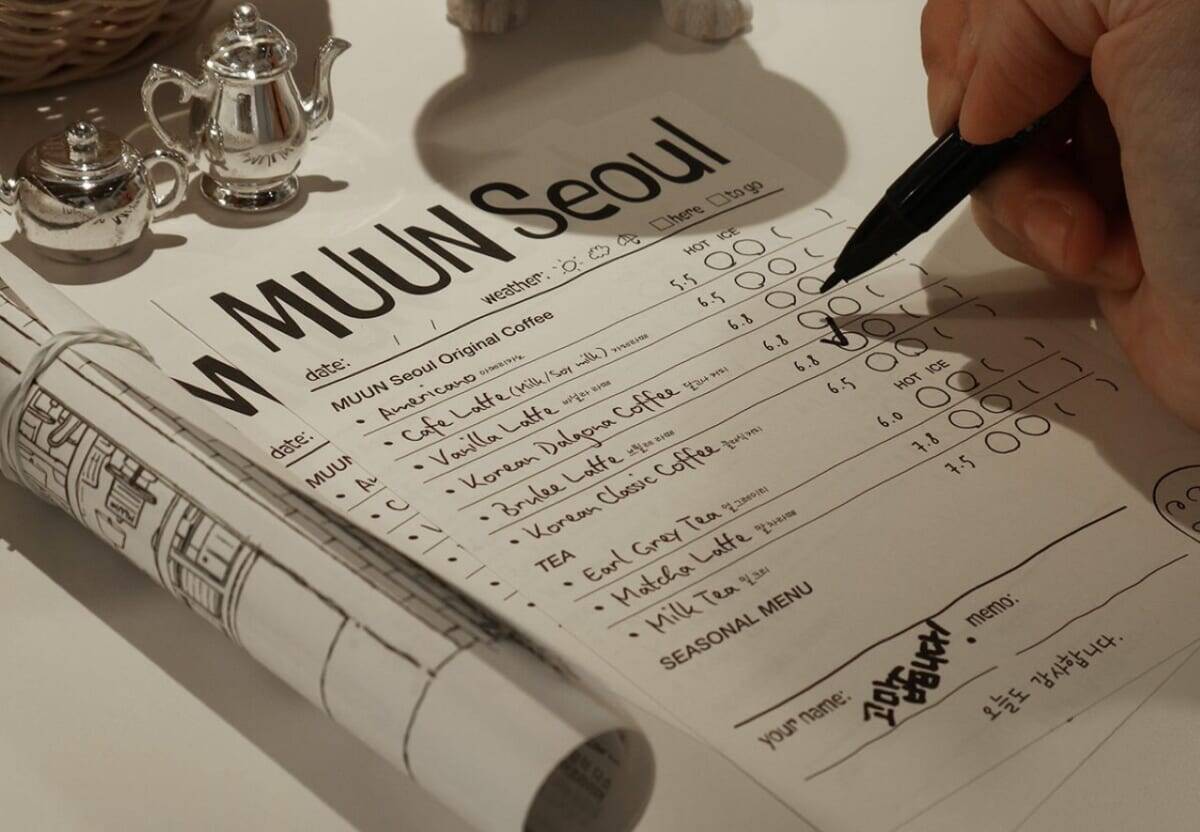 MUUN Seoul
date: / / weather: □here □to go
MUUN Seoul Original Coffee HOT ICE
• Americano 아메리카노 5.5 ( )
• Cafe Latte (Milk/Soy milk) 카페라떼 6.5 ( )
• Vanilla Latte 바닐라 라떼 6.8 ( )
• Korean Dalgona Coffee 달고나 커피 6.8 ( )
• Brulee Latte 브륄레 라떼 6.8 ✓ ( )
• Korean Classic Coffee 6.5 ( )
TEA HOT ICE
• Earl Grey Tea 얼그레이티 6.0 ( )
• Matcha Latte 말차라떼 7.8 ( )
• Milk Tea 밀크티 7.5 ( )
SEASONAL MENU
your name: • memo:
고맙습니다
오늘도 감사합니다.
M
date:
MUUN
• A
• C
• V